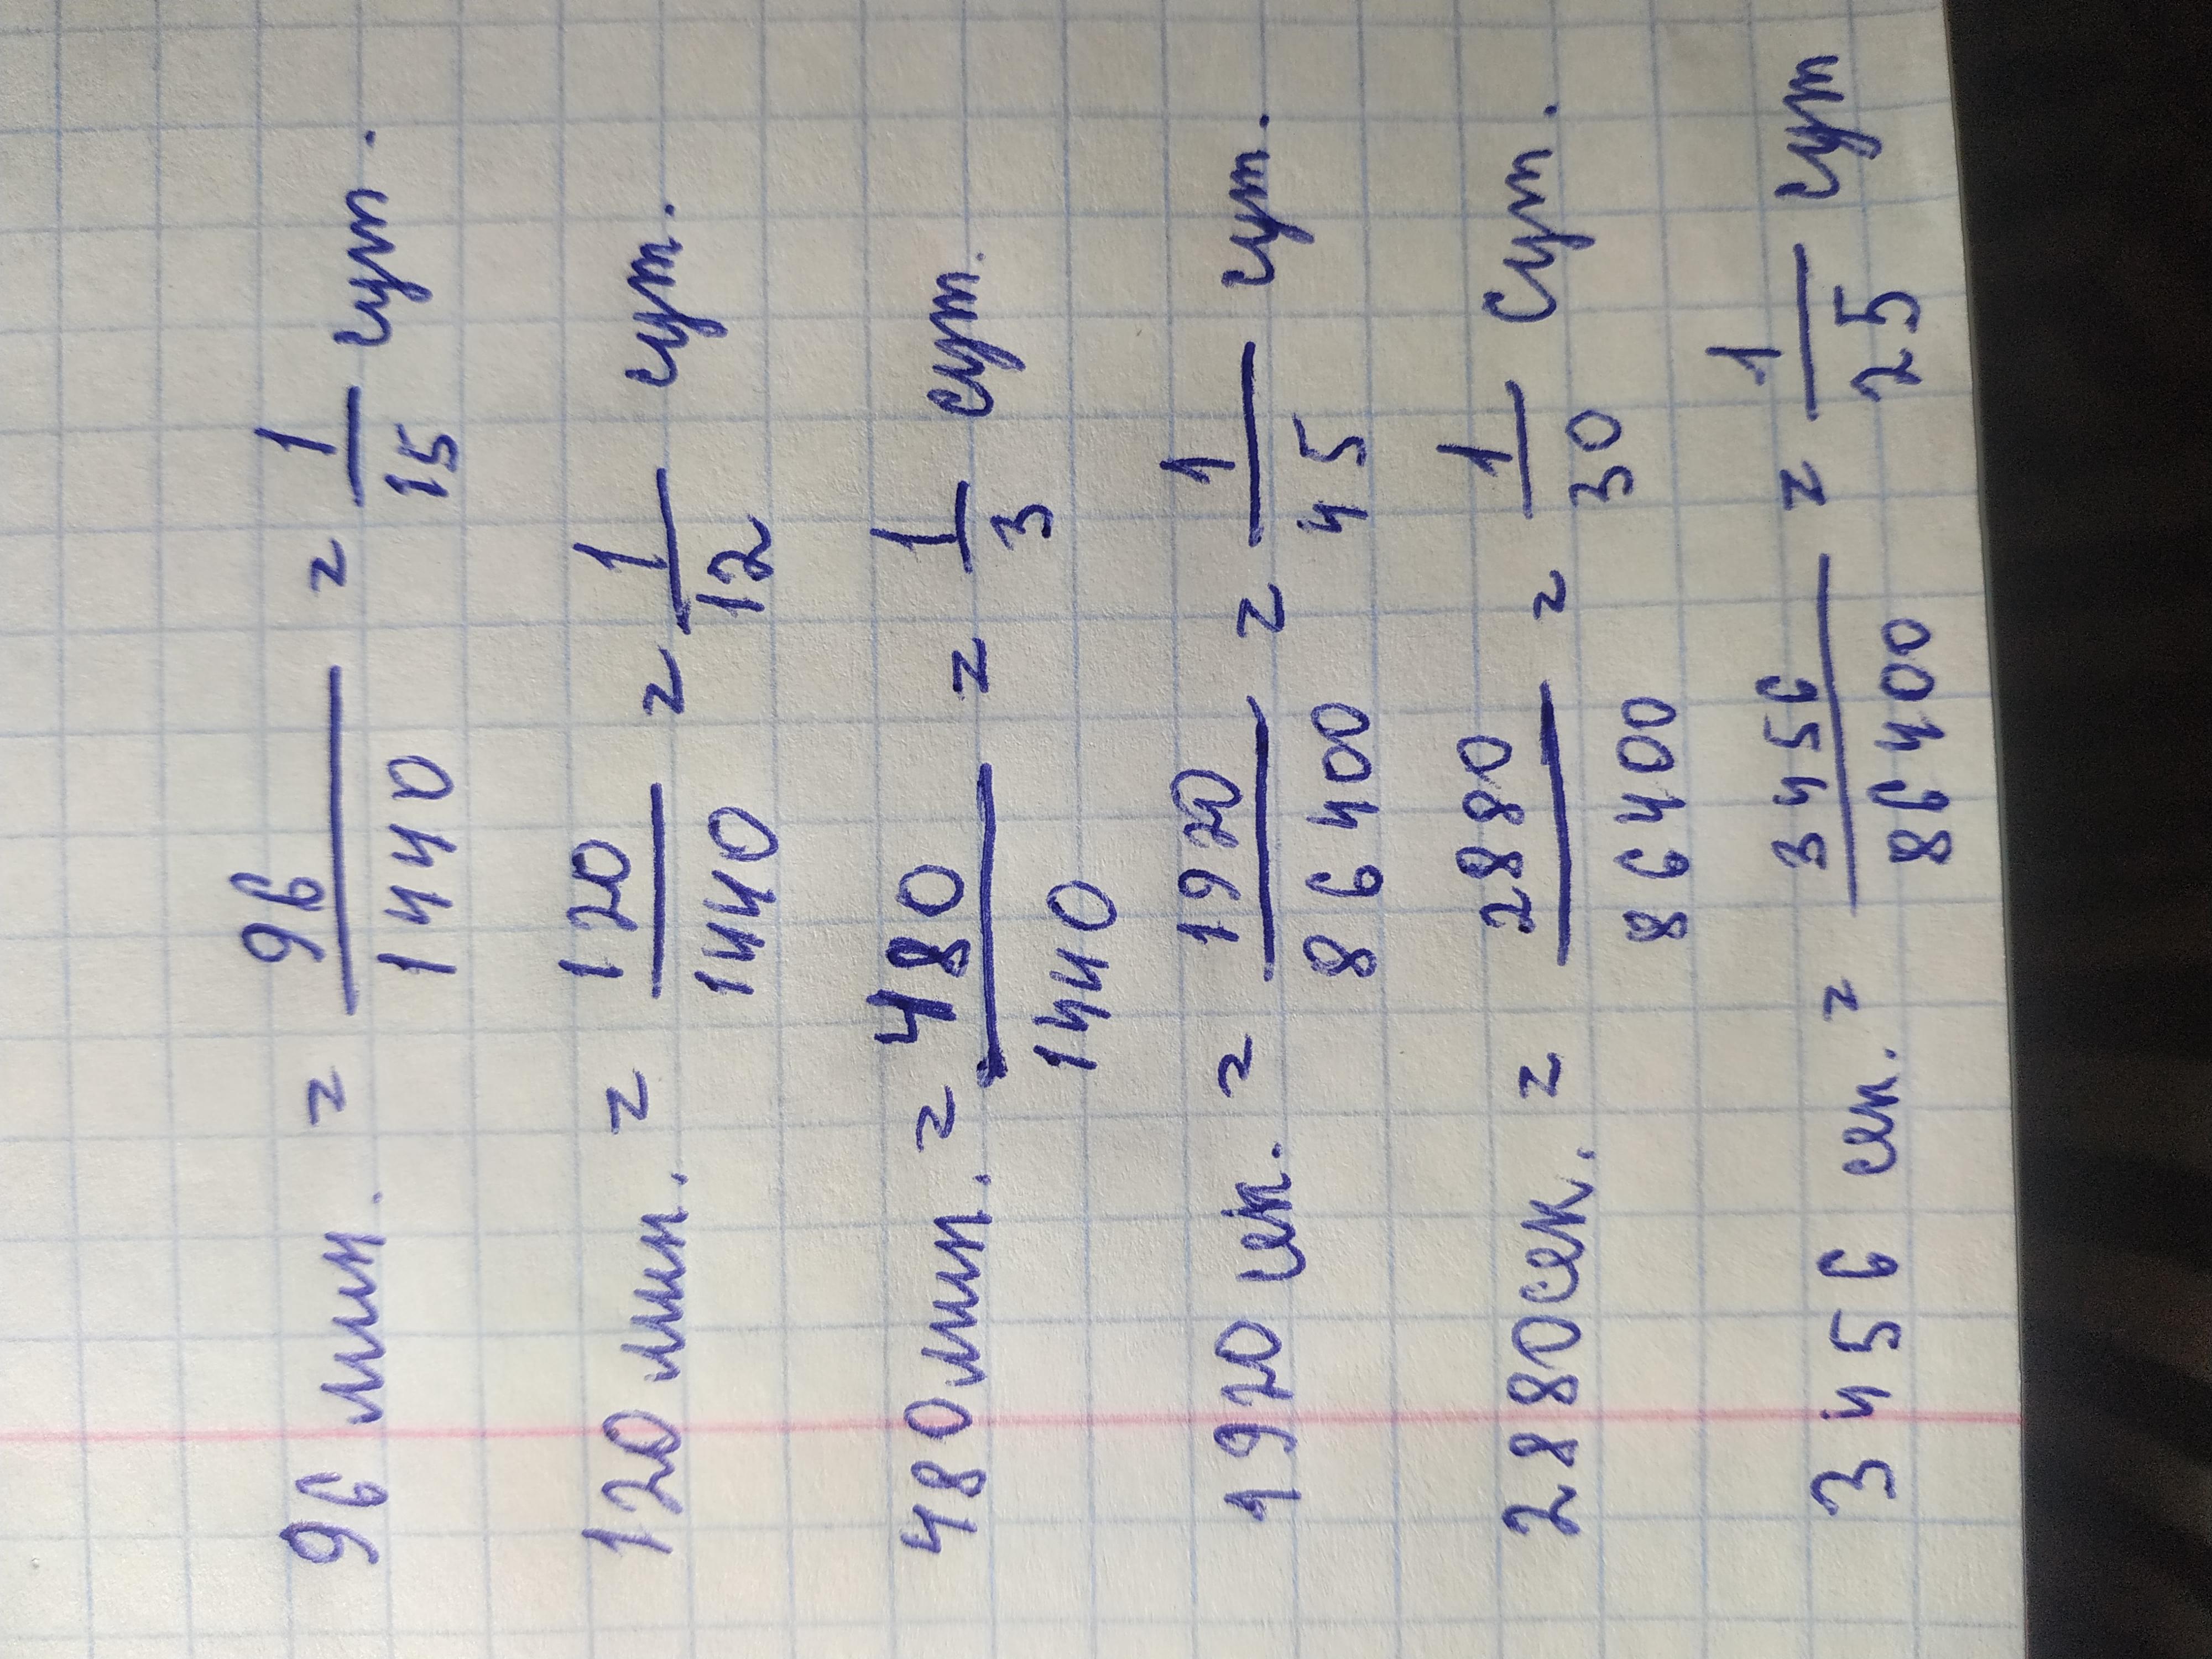 96 мин. = 96/1440 = 1/15 сут.
120 мин. = 120/1440 = 1/12 сут.
480 мин. = 480/1440 = 1/3 сут.
1920 сек. = 1920/86400 = 1/45 сут.
2880 сек. = 2880/86400 = 1/30 сут.
3456 сек. = 3456/86400 = 1/25 сут